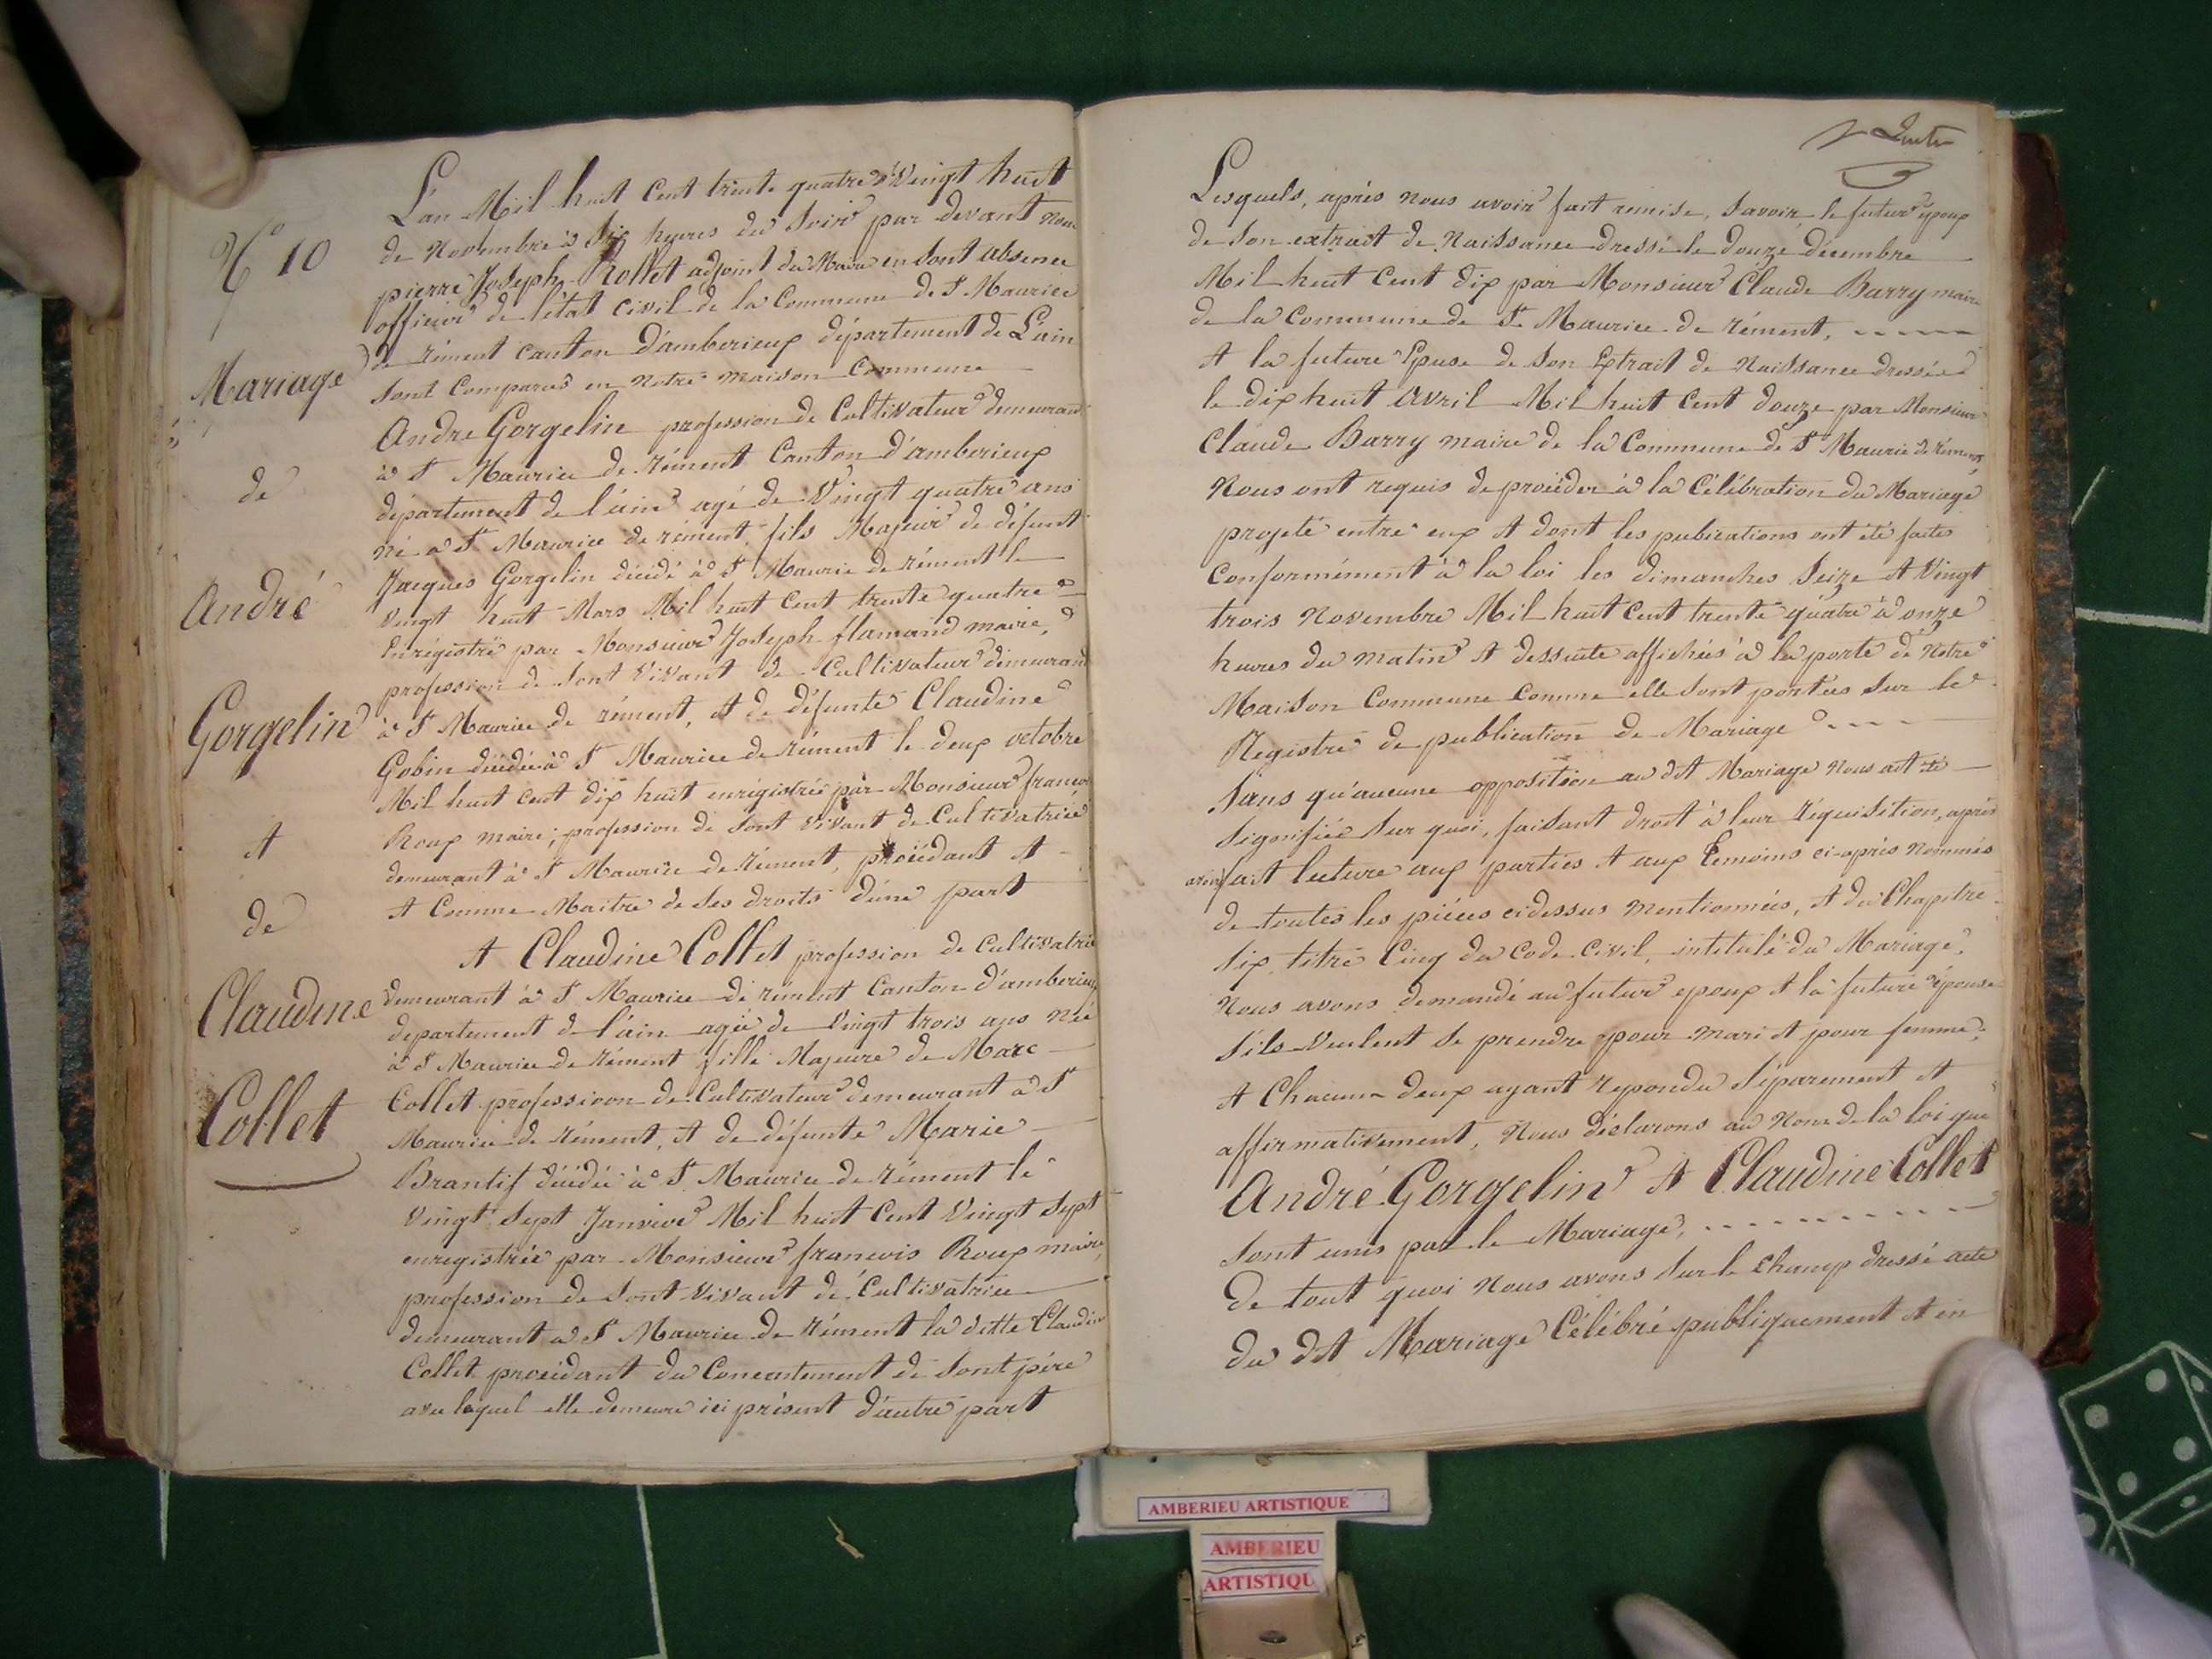 N° 10
Mariage
de
André
Gorgelin
et
de
Claudine
Collet
L'an Mil huit Cent trente quatre Vingt huit
de Novembre à Six heures du Soir par devant nous
pierre Joseph Rollet adjoint du Maire en sont absence
officier de l'état civil de la Commune de St Maurice
de rément canton d'amberieux département de L'ain
sont Comparus en notre maison Commune
Andre Gorgelin profession de Cultivateur demeurant
à St Maurice de rément Canton d'amberieux
département de l'ain agé de Vingt quatre ans
né à St Maurice de rément, fils Majeur de défunt
Jacques Gorgelin décédé à St Maurice de rément le
Vingt huit Mars Mil huit Cent trente quatre
Enrégistré par Monsieur Joseph flamand maire,
profession de sont Vivant de Cultivateur demeurant
à St Maurice de rément, et de défunte Claudine
Gobin décédée à St Maurice de rément le deux octobre
Mil huit cent dix huit enrégistrée par Monsieur francois
Roux maire; profession de sont vivant de Cultivatrice
demeurant à St Maurice de rément, procédant et
et Comme Maitre de ses droits d'une part
et Claudine Collet profession de Cultivatrice
demeurant à St Maurice de rément Canton d'amberieux
departement de l'ain agée de Vingt trois ans née
à St Maurice de rément fille Majeure de Marc
Collet professioon de Cultivateur demeurant à St
Maurice de rément, et de défunte Marie
Brantif décédée à St Maurice de rément le
Vingt Sept Janvier Mil huit Cent Vingt Sept
enregistrée par Monsieur francois Roux maire,
profession de sont vivant de Cultivatrice
demeurant à St Maurice de rément la ditte Claudine
Collet procédant du Concentement de sont père
avec lequel elle demeure ici présent d'autre part
Lesquels, après nous avoir fait remise, Savoir le futur époux
de son extrait de Naissance dressé le douze décembre
Mil huit Cent dix par Monsieur Claude Barry maire
de la Commune de St Maurice de rément,
et la future Epuse de son Extrait de Naissance dressée
le dix huit avril Mil huit Cent douze par Monsieur
Claude Barry maire de la Commune de St Maurice de rément,
Nous ont requis de procéder à la Célébration du Mariage
projeté entre eux et dont les publications ont été faites
Conformément à la loi les dimanches Seize et Vingt
trois Novembre Mil huit Cent trente quatre à onze
heures du matin et dessuite affichées à la porte de Notre
Maison Commune Comme elle sont portées sur le
Registre de publication de Mariage
Sans qu'aucune opposition au dit Mariage nous ait été
Signifiée sur quoi, faisant droit à leur réquisition, après
avoir fait lecture aux parties et aux témoins ci-après nommés
de toutes les pièces cidessus mentionnées, et du Chapitre
Six, titre Cinq du Code Civil, intitulé du Mariage,
Nous avons demandé au futur epoux et la future épouse
S'ils veulent se prendre pour mari et pour femme,
et Chacun deux ayant repondu séparement et
affirmativement, Nous déclarons au Nom de la loi que
André Gorgelin et Claudine Collet
Sont unis par le Mariage,
De tout quoi nous avons sur le champ dressé acte
du dit Mariage Célébré publiquement et en
AMBERIEU ARTISTIQUE
AMBERIEU
ARTISTIQU